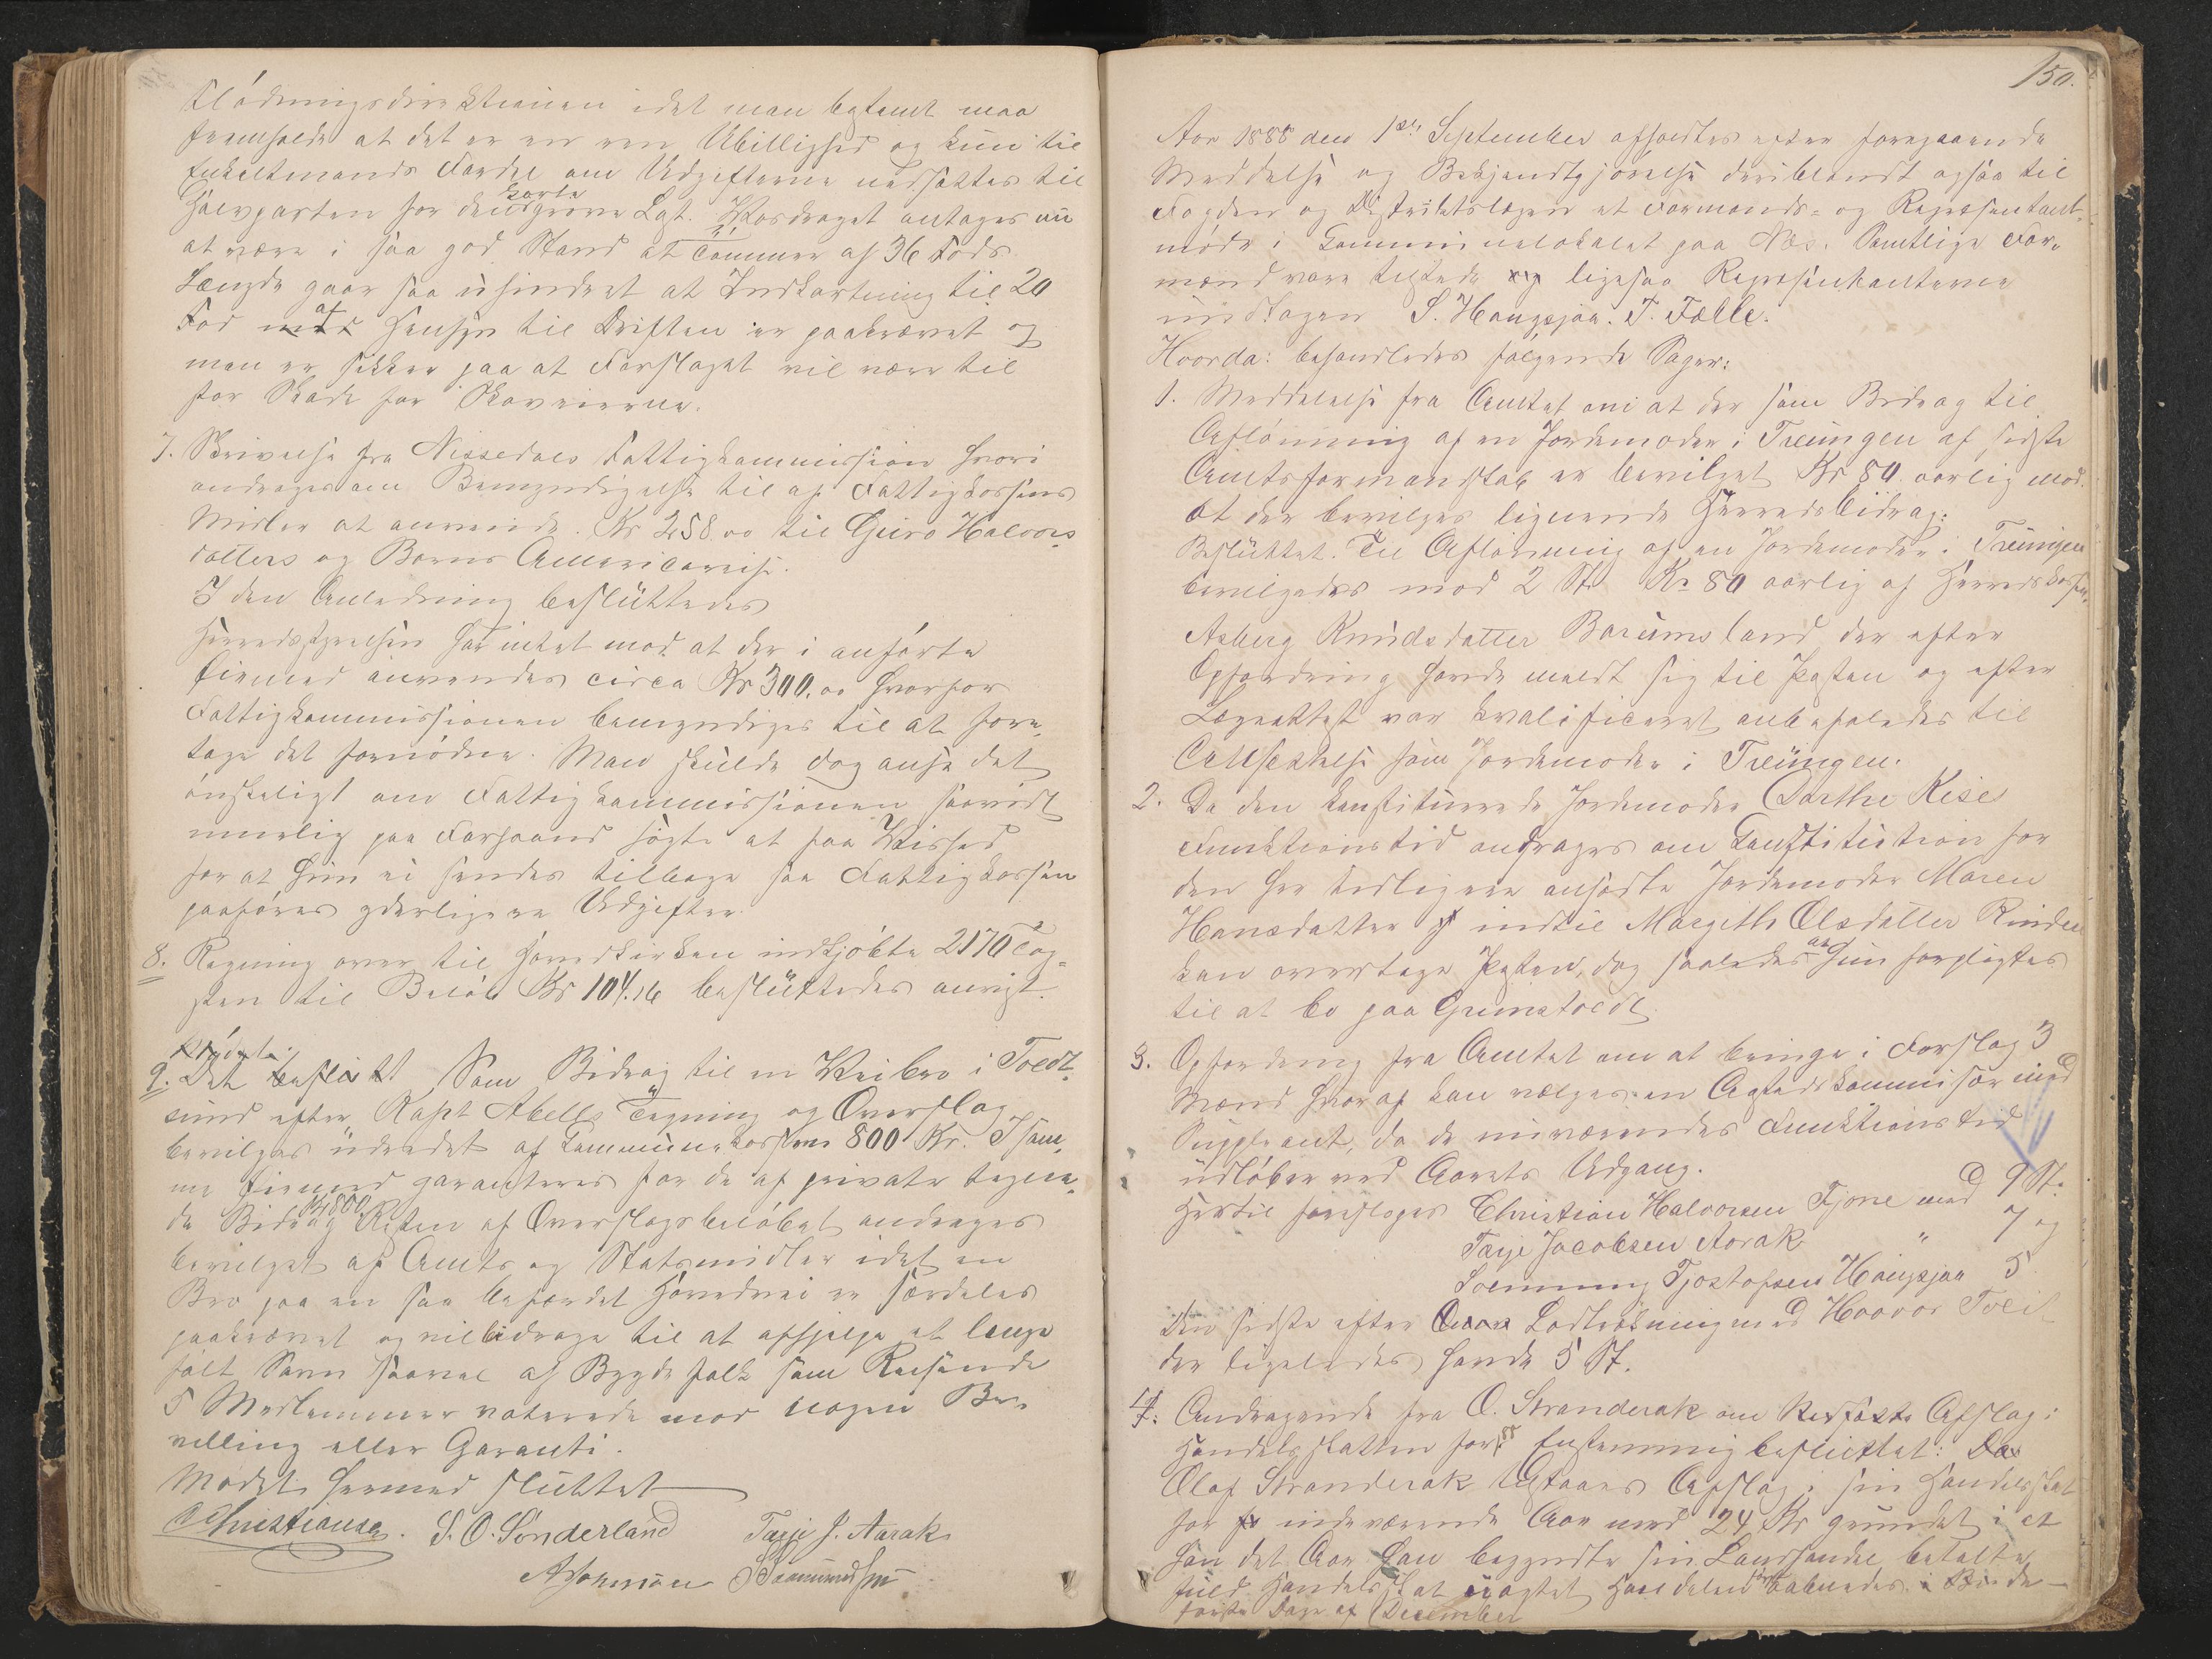 Flødningsdirektionen idet man bestemt maa
fremholde at det er en ren Ubillighed og kun til
Enkeltmands Fordel om Udgifterne nedsættes til
Halvparten for den korte grove Last. Vasdraget antages nu
at være i saa god Stand at Tømmer af 36 Fods
Længde gaar saa uhindret at Indkortning til 20
Fod af Hensyn til Driften er paakrævet og
man er sikker paa at Forslaget vil være til
stor Skade for Skoveierne.
7. Skrivelse fra Nissedals Fattigkommission hvori
andrages om Bemyndigelse til af Fattigkassens
Midler at anvende Kr 258.00 til Guro Halvors
datters og Barns Amerikareise.
I den Anledning besluttedes
Herredsstyrelsen har intet mod at der i anførte
Øiemed anvendes circa Kr 300.00 hvorfor
Fattigkommissionen bemyndiges til at fore
tage det fornødne. Man skulde dog anse det
ønskeligt om Fattigkommissionen saavidt
muelig paa Forhaand søgte at faa Vished
for at hun ei sendes tilbage saa Fattigkassen
paaføres yderligere Udgifter.
8. Regning over til Hovedkirken indkjøbte 2170 Tag-
sten til Beløb Kr 104.16 besluttedes anvist.
9. Det beslut Som Bidrag til en Veibro i Tvedt-
sund efter Kapt Abells Tegning og Overslag
bevilges udredet af Kommunekassen 800 Kr. I sam-
me Øiemed garanteres for de af private tegne-
de Bidrag Kr 800 Resten af Overslagsbeløbet andrages
bevilget af Amts og Statsmidler idet en
Bro paa en saa befærdet Hovedvei er særdeles
paakrævet og vil bidrage til at afhjelpe et længe
følt Savn saavel af Bygdefolk som Reisende
5 Medlemmer voterede mod nogen Be-
villing eller Garanti.
Mødet hermed sluttet
Christiansen. S. O. Sønderland Tarje J. Aarak
150.
Aar 1888 den 1ste September afholdtes efter foregaaende
Meddelse og Bekjendtgjørelse deriblandt ogsaa til
Fogden og Distriktslægen et Formands- og Repræsentant-
møde i Kommunelokalet paa Næs. Samtlige For-
mænd vare tilstede og ligesaa Repræsentanterne
undtagen S. Haugsjaa. T. Fælle.
Hvorda: behandledes følgende Sager:
1. Meddelelse fra Amtet om at der som Bidrag til
Aflønning af en Jordemoder i Treungen af sidste
Amtsformandskab er bevilget Kr 80 aarlig mod
at der bevilges lignende Herredsbidrag:
Besluttet. Til Aflønning af en Jordemoder i Treungen
bevilgedes mod 2 St. Kr 80 aarlig af Herredskassen.
Aaberg Knudsdatter Barumsland der efter
Opfordring havde meldt sig til Posten og efter
Lægeattest var kvalificeret anbefaledes til
Ansættelse som Jordemoder i Treungen.
2. Da den konstituerede Jordemoder Dorthe Kise
Funktionstid andrages om Konstitution for
den her tidligere ansatte Jordemoder Maren
Hansdatter indtil Margithe Olsdatter Rinden
kan overtage Posten, dog saaledes at hun forpligtes
til at bo paa Grimstvedt
3. Opfordring fra Amtet om at bringe i Forslag 3
Mænd hvoraf kan vælges en Kommisær med
Suppleant, da de nuværendes Funktionstid
udløber ved Aarets Udgang.
Hertil foresloges Christian Halvorsen Fjone med 9 St.
Tarje Jacobsen Aarak " 7 og
Tjostolfsen Haugsjaa 5
den sidste efter Lodtrækning med Haavor Tveit
der ligeledes havde 5 St.
4. Andragende fra O. Stranderak om Afslag i
Handelsskatten for Enstemmig besluttet: Da
Olaf Stranderak tilstaaes Afslag i sin Handelsskat
for indeværende Aar med 24 Kr grundet i at
han det Aar han begyndte sin Landhandel betalte
fuld Handelsskat uagtet Handelen først aabnedes i de
første Dage af December